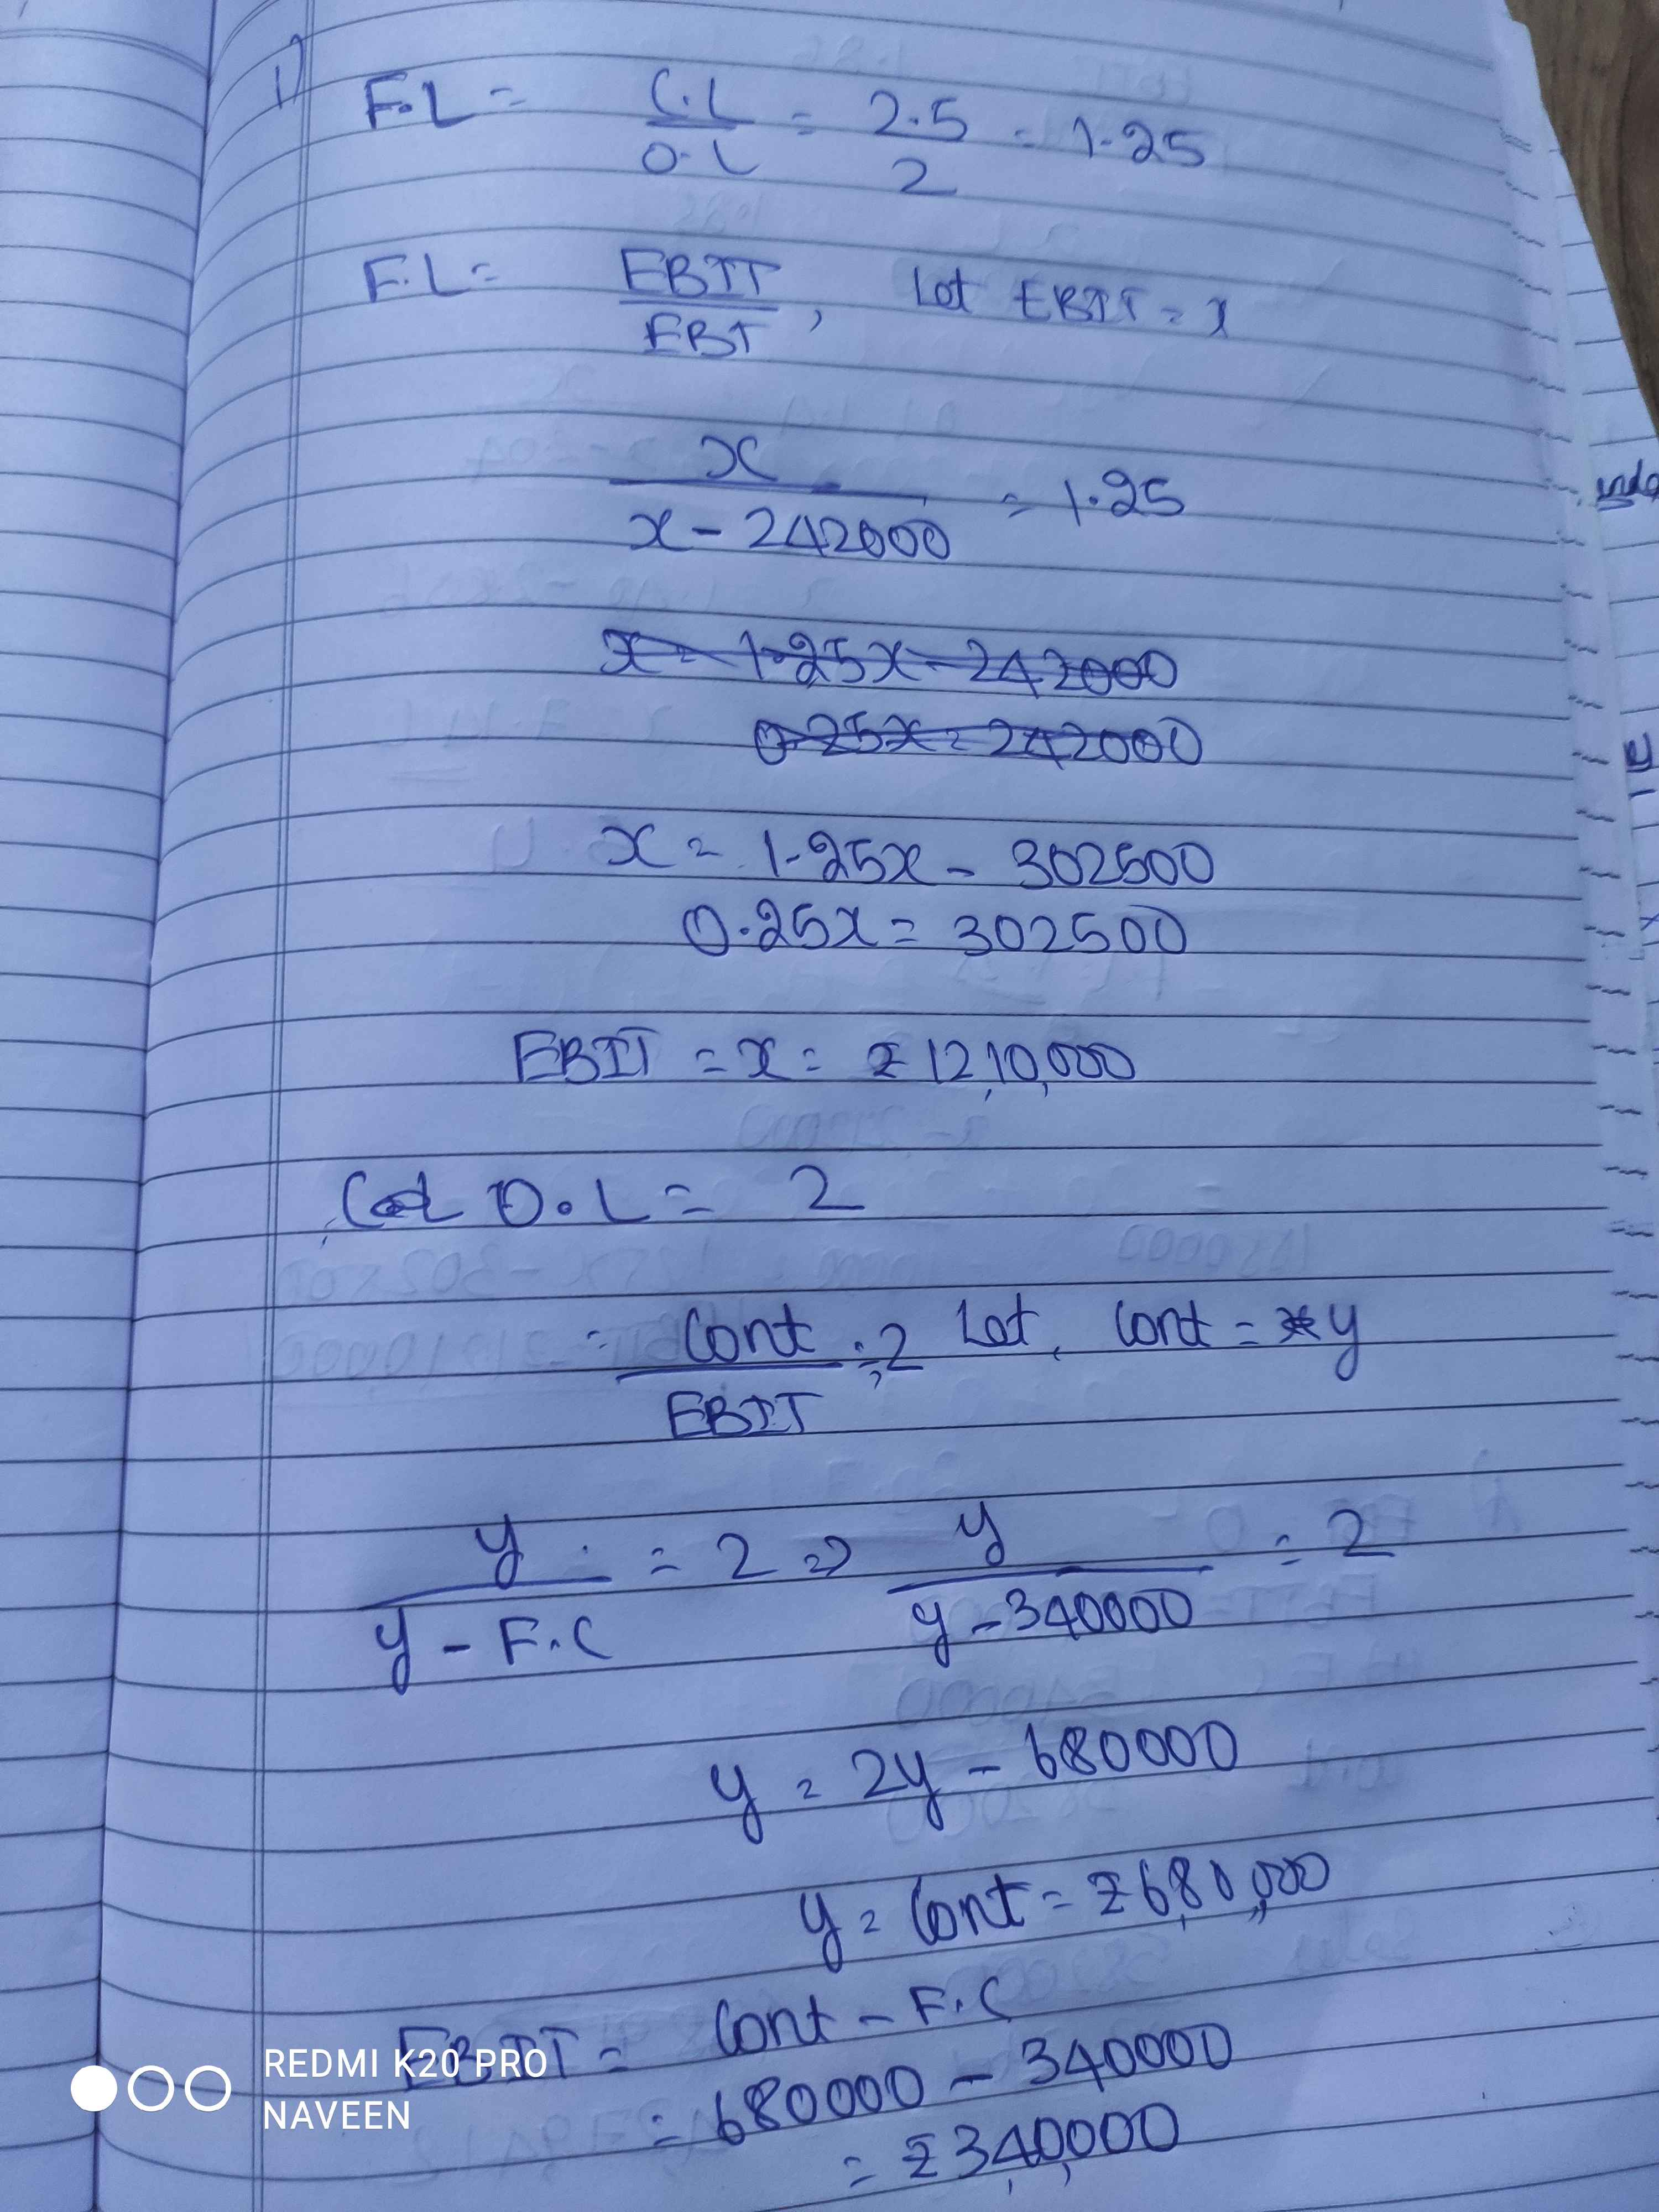 1)
F.L = C.L / O.L = 2.5 / 2 = 1.25
F.L = EBIT / EBT , Let EBIT = x
x / x - 242000 = 1.25
x = 1.25x - 242000
0.25x = 242000
x = 1.25x - 302500
0.25x = 302500
EBIT = x = ₹ 12,10,000
O.L = 2
= Cont / EBIT = 2, Let, Cont = y
y / y - F.C = 2 => y / y - 340000 = 2
y = 2y - 680000
y = Cont = ₹6,80,000
EBIT = Cont - F.C
= 680000 - 340000
= ₹3,40,000
REDMI K20 PRO
NAVEEN